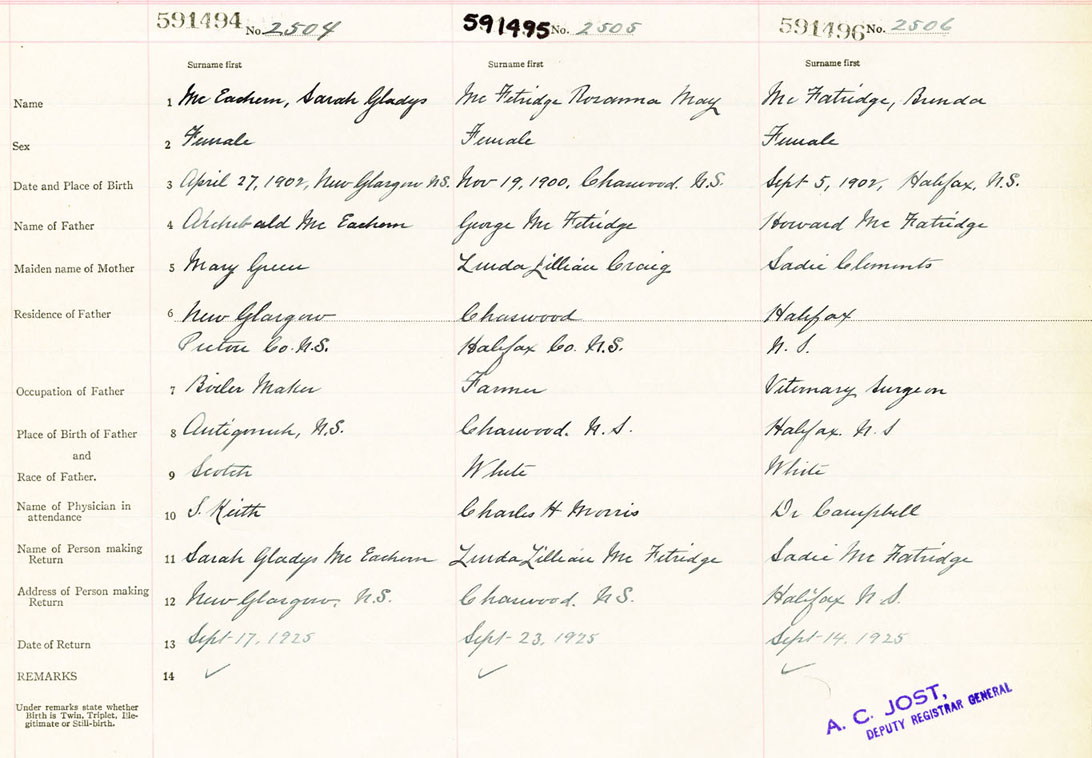 591494 No. 2504 591495 No. 2505 591496 No. 2506
Surname first Surname first Surname first
Name 1 Mc Eachern, Sarah Gladys Mc Fitridge Rosanna May Mc Fatridge, Brenda
Sex 2 Female Female Female
Date and Place of Birth 3 April 27, 1902, New Glasgow N.S. Nov 19, 1900, Chaswood. N.S. Sept 5, 1902, Halifax, N.S.
Name of Father 4 Archibald Mc Eachern George Mc Fitridge Howard Mc Fatridge
Maiden name of Mother 5 Mary Green Linda Lillian Craig Sadie Clements
Residence of Father 6 New Glasgow Chaswood Halifax
Pictou Co. N.S. Halifax Co. N.S. N. S.
Occupation of Father 7 Boiler Maker Farmer Veternary Surgeon
Place of Birth of Father 8 Antigonish, N.S. Chaswood. N. S. Halifax. N. S
and
Race of Father. 9 Scotch White White
Name of Physician in
attendance 10 S. Keith Charles H Morris Dr Campbell
Name of Person making
Return 11 Sarah Gladys Mc Eachern Linda Lillian Mc Fitridge Sadie Mc Fatridge
Address of Person making
Return 12 New Glasgow, N.S. Chaswood. N.S. Halifax N. S.
Date of Return 13 Sept 17, 1925 Sept 23, 1925 Sept 14, 1925
REMARKS 14 ✓ ✓ ✓
Under remarks state whether
Birth is Twin, Triplet, Ille-
gitimate or Still-birth.
A. C. JOST,
DEPUTY REGISTRAR GENERAL